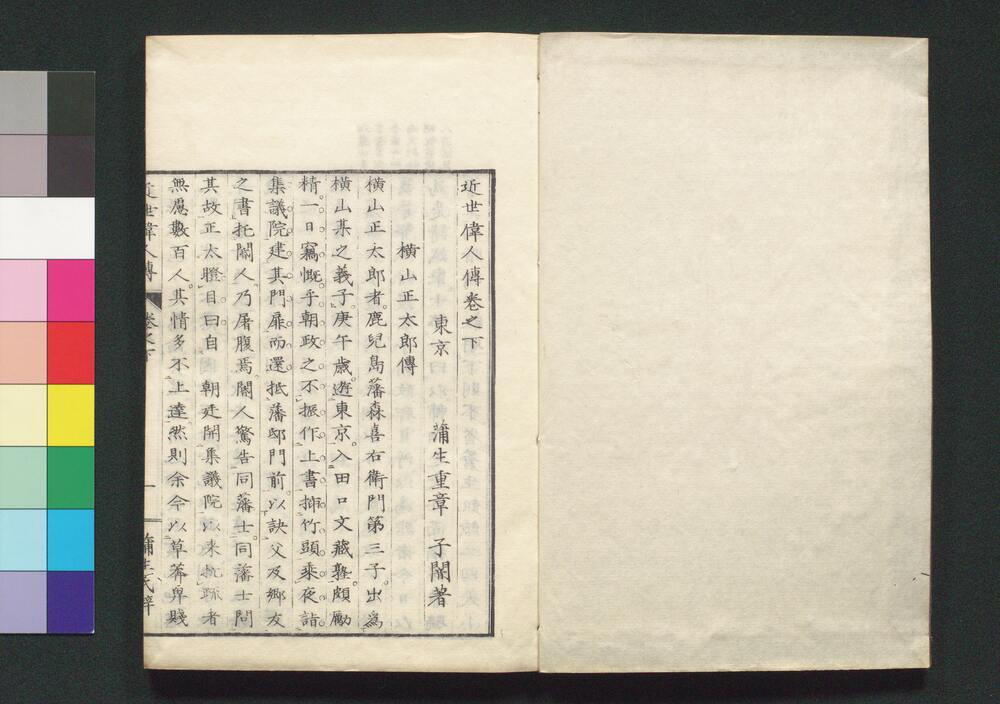 近世偉人傳卷之下
東京 蒲生重章 子闇著
橫山正太郎傳
橫山正太郎者。鹿兒島藩森喜右衛門第三子。出爲
橫山某之義子。庚午歲。遊東京。入田口文藏塾。頗勵
精。一日竊慨乎朝政之不振作。上書揷竹頭。乘夜詣
集議院。建其門扉而還。抵藩邸門前。以訣父及鄉友
之書托閽人。乃屠腹焉。閽人驚告同藩士。同藩士問
其故。正太瞪目曰。自 朝廷開集議院以來。抗疏者
無慮數百人。其情多不上達。然則余今以草莽卑賤
近世偉人傳 卷之下 一 蒲生氏